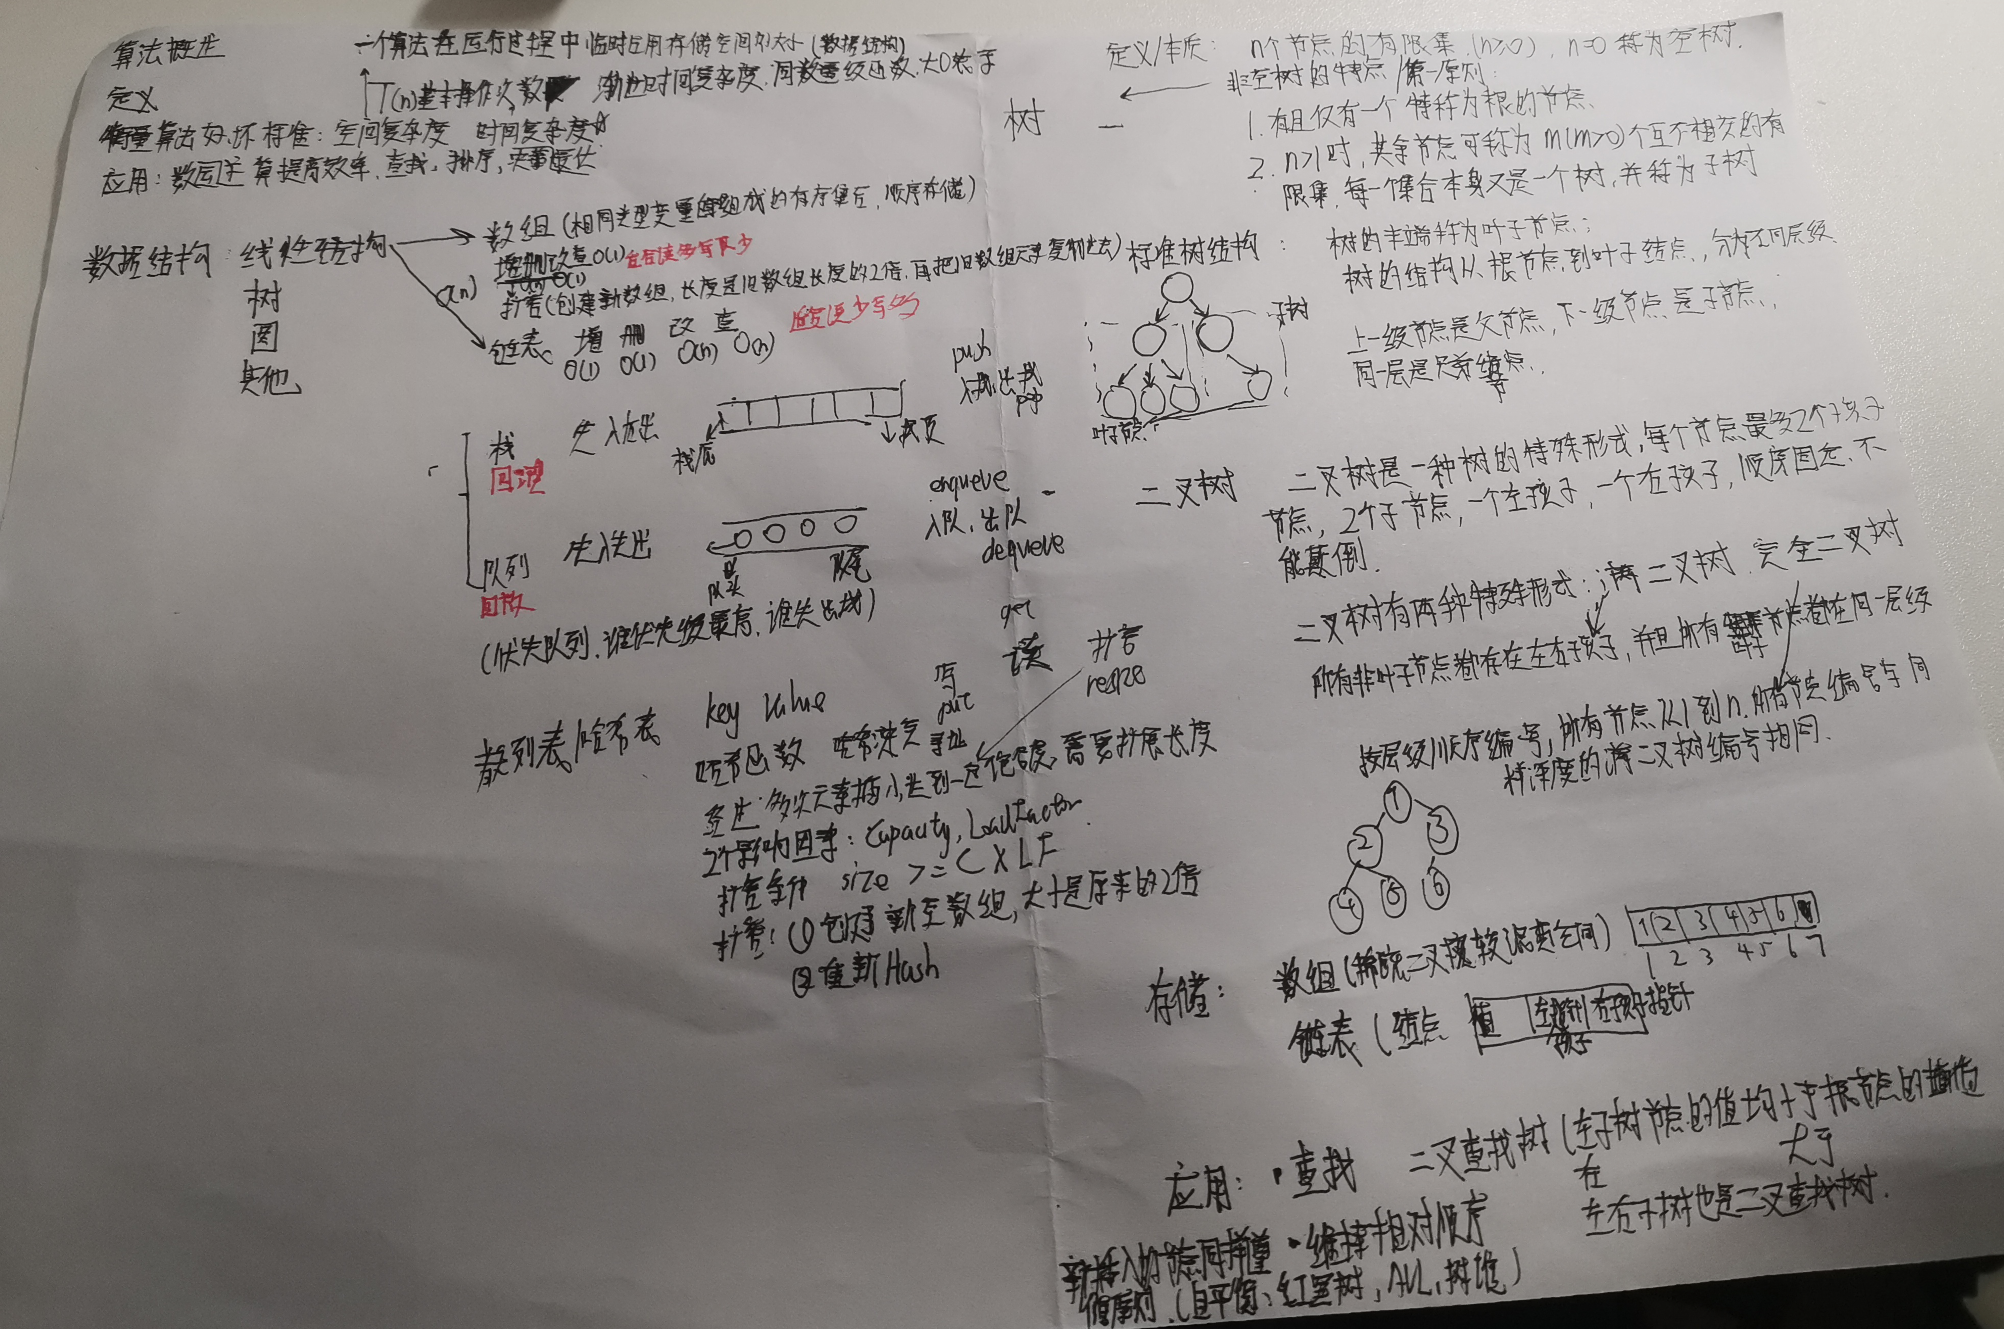 算法概述
一个算法在运行过程中临时占用存储空间的大小(数据结构)
定义
T(n)基本操作次数 渐进时间复杂度,同数量级函数,大O表示
衡量算法好坏标准:空间复杂度 时间复杂度
应用:数运算提高效率、查找、排序,
数据结构:线性结构
树
图
其他
数组(相同类型变量组成的有序集合,顺序存储)
增删改查O(1) 适合读多写少
O(n) O(1)
扩容(创建新数组,长度是旧数组长度的2倍,再把旧数组元素复制过去)
链表 增 删 改 查 读少写多
O(1) O(1) O(n) O(n)
栈 先入后出
回溯
栈底
栈顶
push
入栈,出栈
pop
队列 先入先出
回放
队头
队尾
enqueue
入队,出队
dequeue
(优先队列,谁优先级最高,谁先出栈)
散列表/哈希表
key value
写 put
读 get
扩容 resize
哈希函数 哈希冲突 寻址
经过多次元素插入,达到一定饱和度,需要扩展长度
2个影响因素:Capacity, LoadFactor
扩容条件 size >= C X LF
扩容:①创建新空数组,大小是原来的2倍
②重新Hash
树
定义/本质: n个节点的有限集(n≥0), n=0称为空树.
非空树的特点/第一原则:
1.有且仅有一个特称为根的节点、
2. n>1时,其余节点可称为m(m>0)个互不相交的有
限集,每一个集合本身又是一个树,并称为子树
标准树结构:
子树
叶子节点
树的末端称为叶子节点;
树的结构从根节点到叶子结点,分为不同层级
上一级节点是父节点,下一级节点是子节点,
同一层是兄弟结点.
二叉树
二叉树是一种树的特殊形式,每个节点最多2个孩子
节点,2个子节点,一个左孩子,一个右孩子,顺序固定、不
能颠倒.
二叉树有两种特殊形式:满二叉树.完全二叉树
所有非叶子节点都存在左右孩子,并且所有叶子节点都在同一层级
按层级顺序编号,所有节点从1到n.所有节点编号与同
样深度的满二叉树编号相同.
1
2 3
4 5 6
存储:
数组(稀疏二叉树较浪费空间)
1 2 3 4 5 6
1 2 3 4 5 6 7
链表(结点 值 左孩子指针 右孩子指针
应用:·查找 二叉查找树(左子树节点的值均小于根节点的值
右 大于
左右子树也是二叉查找树.
·维持相对顺序
新插入的节点同样遵
循原则.(自平衡:红黑树, AVL, 树堆)